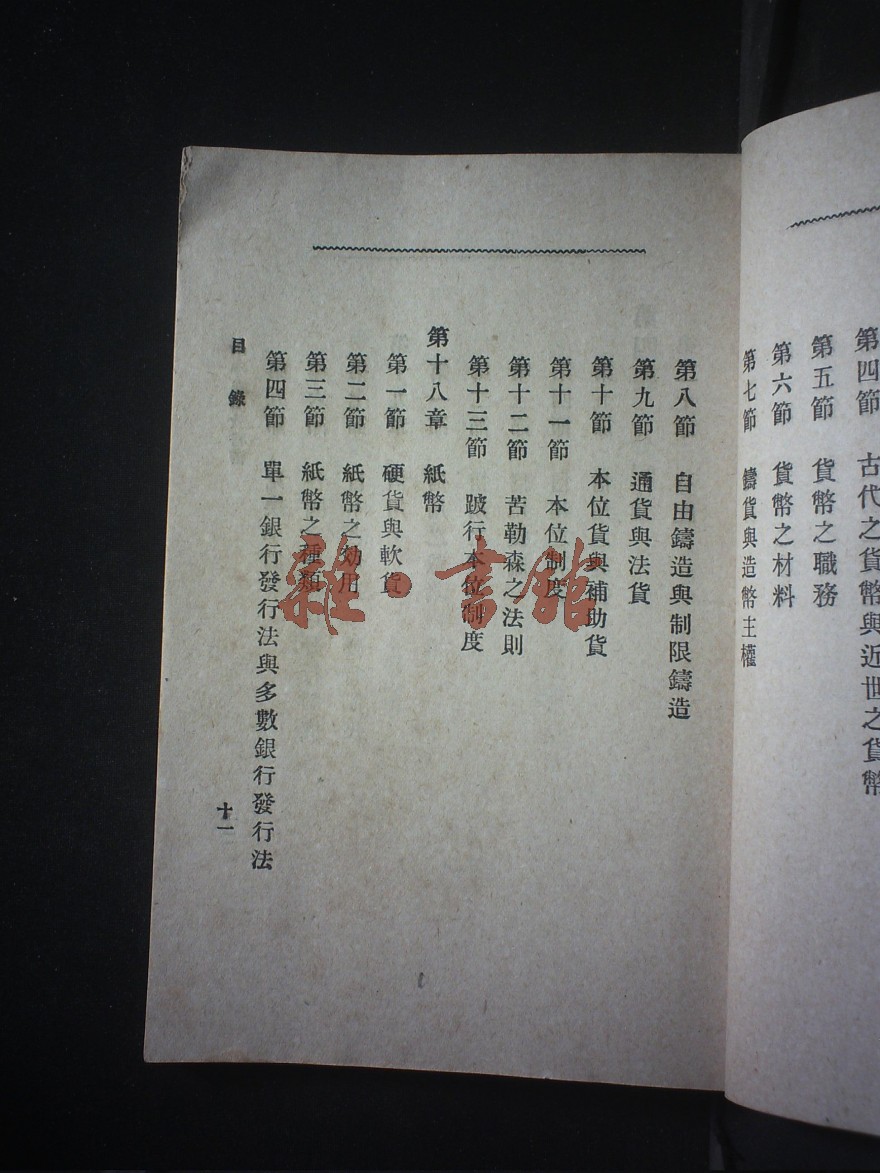 第四節　古代之貨幣與近世之貨幣
第五節　貨幣之職務
第六節　貨幣之材料
第七節　鑄貨與造幣主權
第八節　自由鑄造與制限鑄造
第九節　通貨與法貨
第十節　本位貨與補助貨
第十一節　本位制度
第十二節　苦勒森之法則
第十三節　跛行本位制度
第十八章　紙幣
第一節　硬貨與軟貨
第二節　紙幣之効用
第三節　紙幣之種類
第四節　單一銀行發行法與多數銀行發行法
目錄
十一
雜·書館